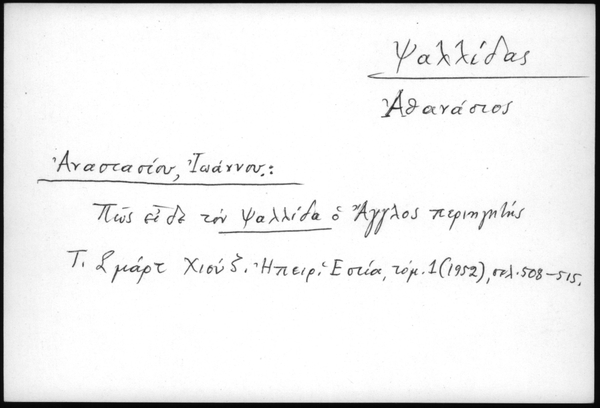 Ψαλλίδας
Ἀθανάσιος
Ἀναστασίου, Ἰωάννου.:
Πῶς εἶδε τόν Ψαλλίδα ὁ Ἄγγλος περιηγητής
Τ. Σμάρτ Χιούζ. Ἠπειρ. Ἑστία, τόμ. 1 (1952), σελ. 508-515.